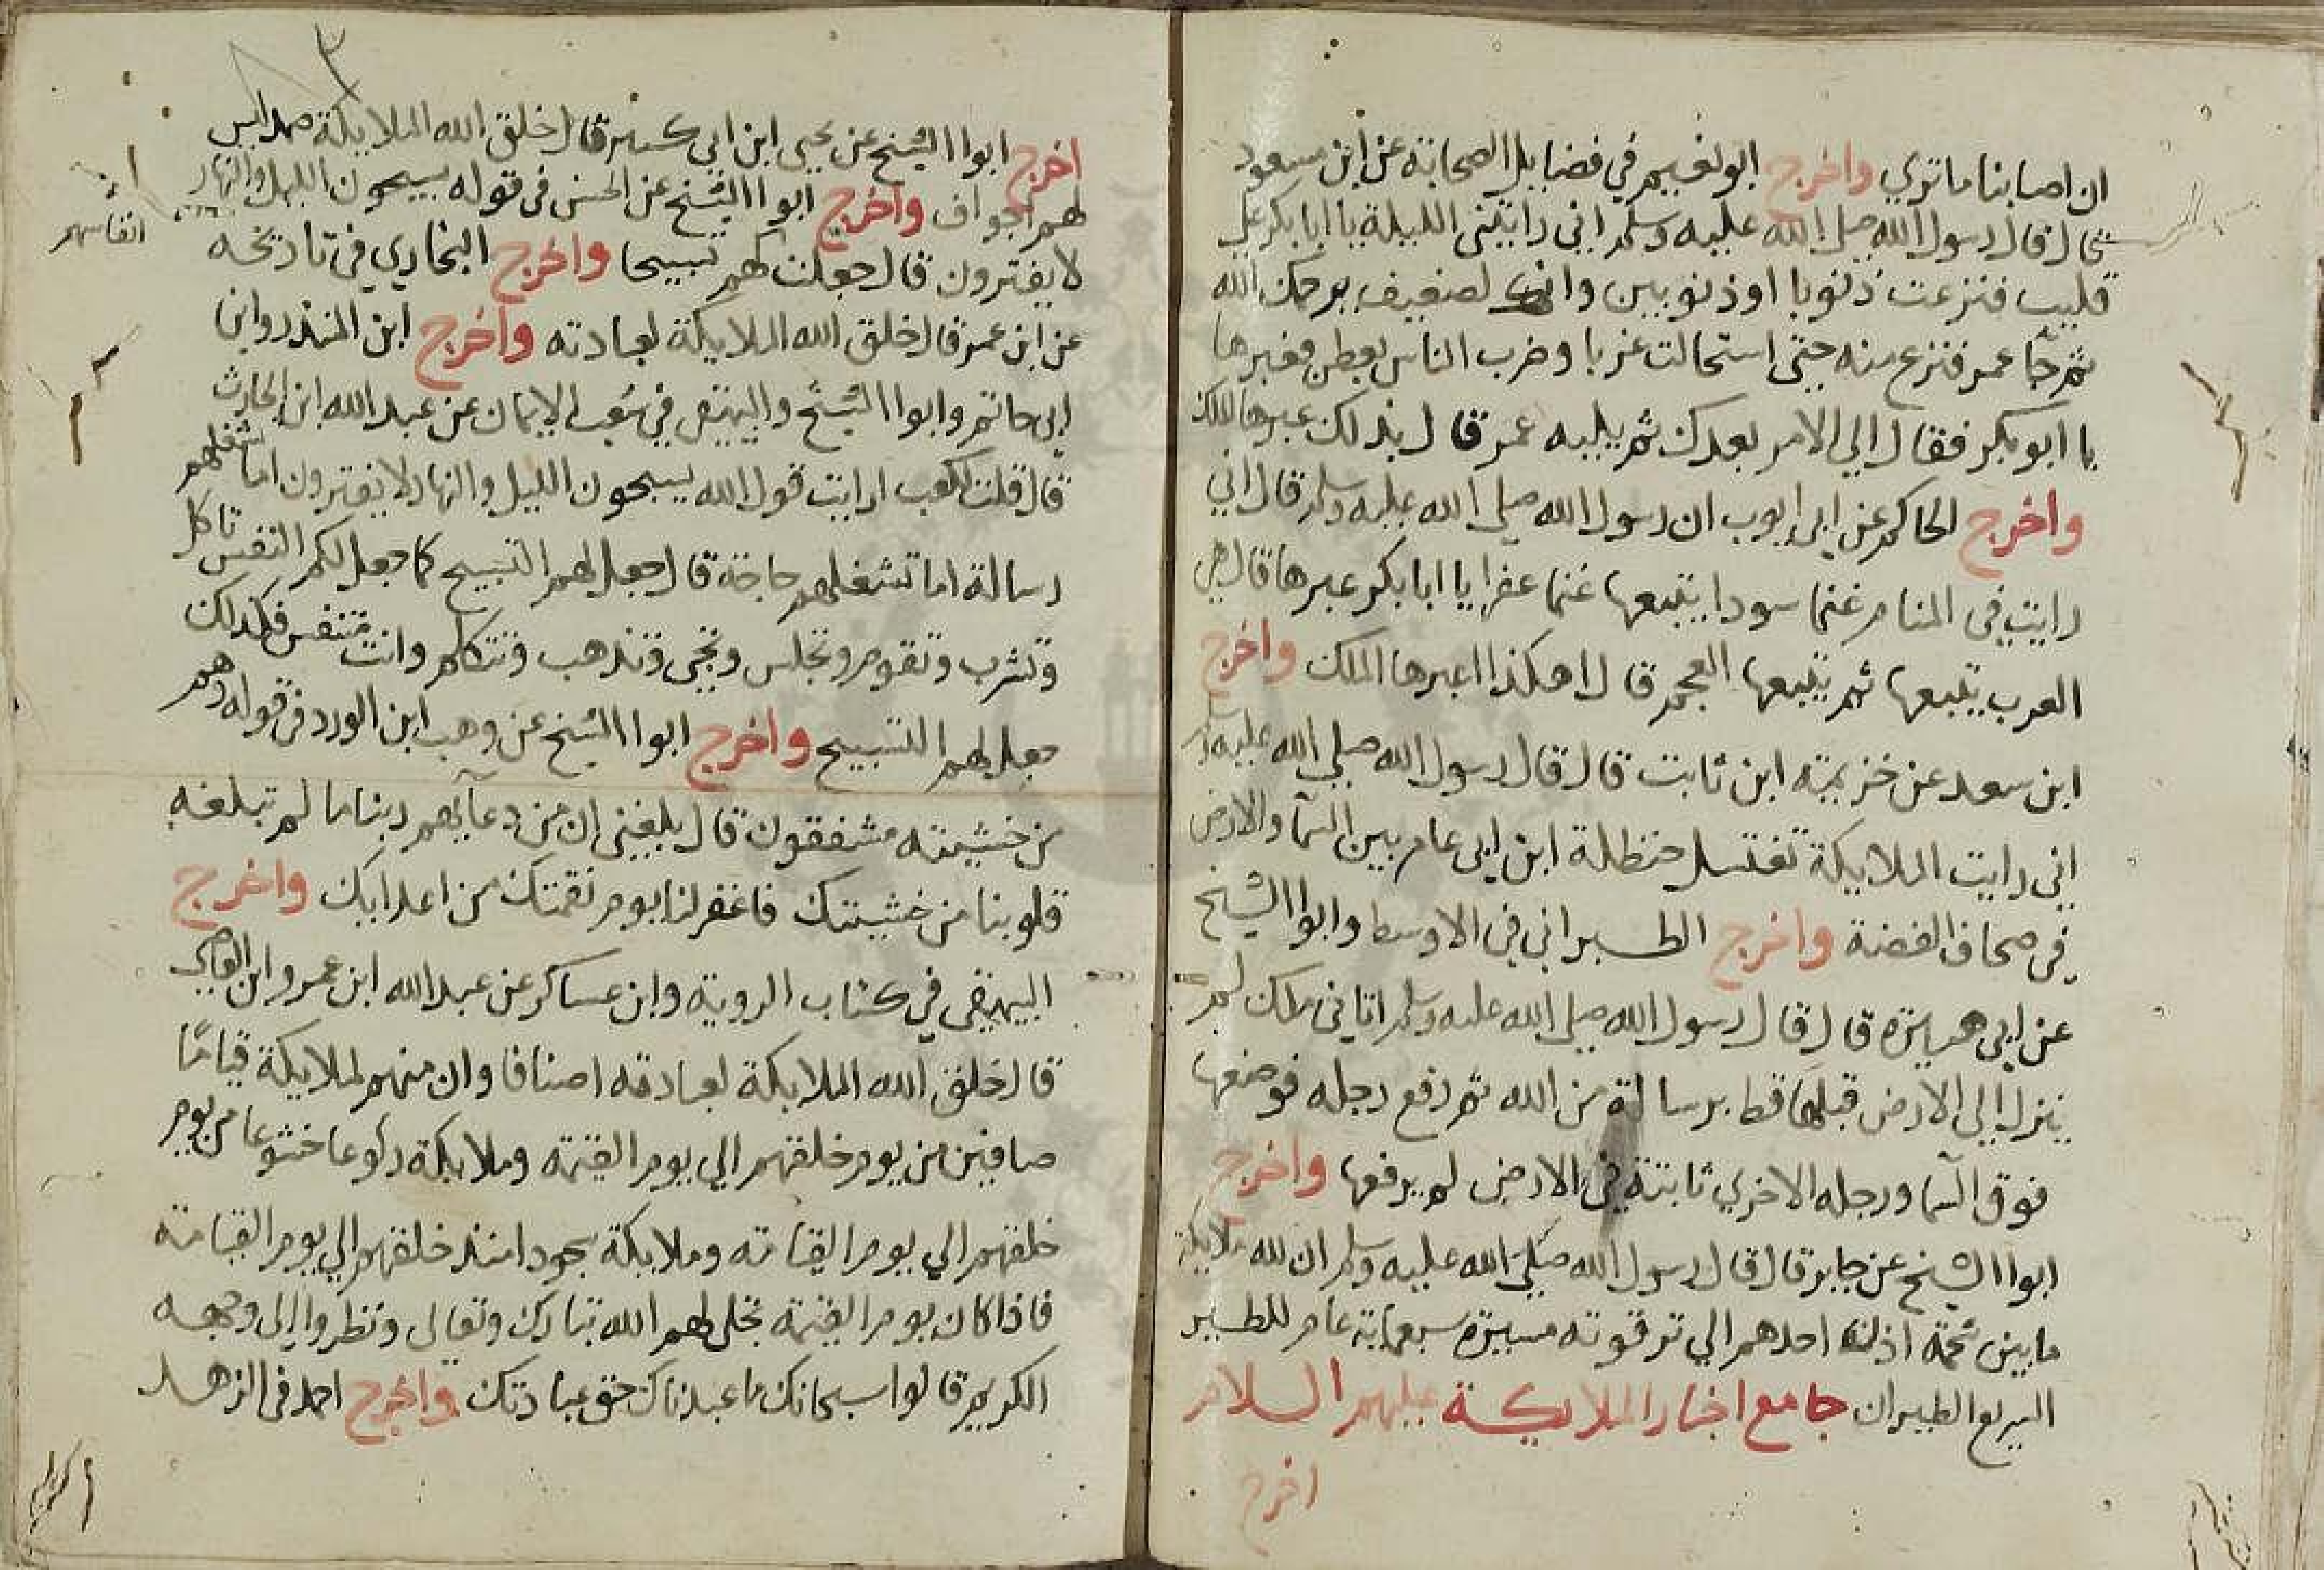 ان اصابنا ماتري واخرج ابو نعيم في فضايل الصحابة عن ابن مسعود
قال قال رسول الله صلي الله عليه وسلم اني رايتني الليلة يا ابا بكر علي
قليب فنزعت ذنوبا او ذنوبين واني لضعيف يرحمك الله
ثم جا عمر فنزع منه حتي استحالت غربا وضرب الناس بعطن فعبرها
يا ابو بكر فقال الي الامر بعدك ثم يليه عمر قال بذلك عبرها الملك
واخرج الحاكم عن ابي ايوب ان رسول الله صلي الله عليه وسلم قال اني
رايت في المنام غنما سودا يتبعها غنما عفرا يا ابا بكر عبرها قال هي
العرب يتبعها ثم يتبعها العجم قال هكذا اعبرها الملك واخرج
ابن سعد عن خزيمة ابن ثابت قال قال رسول الله صلي الله عليه وسلم
اني رايت الملايكة تغتسل حنظلة ابن ابي عامر بين السما والارض
في صحاف الفضة واخرج الطبراني في الاوسط وابوا الشيخ
عن ابي هريرة قال قال رسول الله صلي الله عليه وسلم اتاني ملك لم
ينزل الي الارض قبلها قط برسالة من الله ثم رفع رجله فوضعها
فوق السما ورجله الاخري ثابتة في الارض لم يرفعها واخرج
ابوا الشيخ عن جابر قال قال رسول الله صلي الله عليه وسلم ان لله ملايكة
ما بين شحمة اذن احدهم الي ترقوته مسيرة سبعماية عام للطير
السريع الطيران جامع اخبار الملايكة عليهم السلام
اخرج
٣
اخرج ابوا الشيخ عن يحيي ابن ابي كثير قال خلق الله الملايكة صمد ليس
لهم اجواف واخرج ابوا الشيخ عن الحسن في قوله يسبحون الليل والنهار
لا يفترون قال جعلت لهم تسبيحا واخرج البخاري في تاريخه
انفاسهم
عن ابن عمر قال خلق الله الملايكة لعبادته واخرج ابن المنذر وابن
ابي حاتم وابوا الشيخ والبيهقي في شعب الايمان عن عبد الله ابن الحارث
قال قلت لكعب ارايت قول الله يسبحون الليل والنهار لا يفترون اما شغلهم
رسالة اما تشغلهم حاجة قال جعل لهم التسبيح كما جعل لكم النفس تاكل
وتشرب وتقوم وتجلس وتجي وتذهب وتتكلم وانت تتنفس فكذلك
جعل لهم التسبيح واخرج ابوا الشيخ عن وهب ابن الورد في قوله وهم
من خشيته مشفقون قال بلغني ان من دعآيهم ربنا ما لم تبلغه
قلوبنا من خشيتك فاغفر لنا يوم نقمتك من اعدايك واخرج
البيهقي في كتاب الروية وابن عساكر عن عبد الله ابن عمرو ابن العاصي
قال خلق الله الملايكة لعبادته اصنافا وان منهم لملايكة قياما
صافين من يوم خلقهم الي يوم القيمة وملايكة ركوعا خشوعا من يوم
خلقهم الي يوم القيامة وملايكة سجودا منذ خلقهم الي يوم القيامة
فاذا كان يوم القيمة تجلي لهم الله تبارك وتعالي ونظروا الي وجهه
الكريم قالوا سبحانك ما عبدناك حق عبادتك واخرج احمد في الزهد